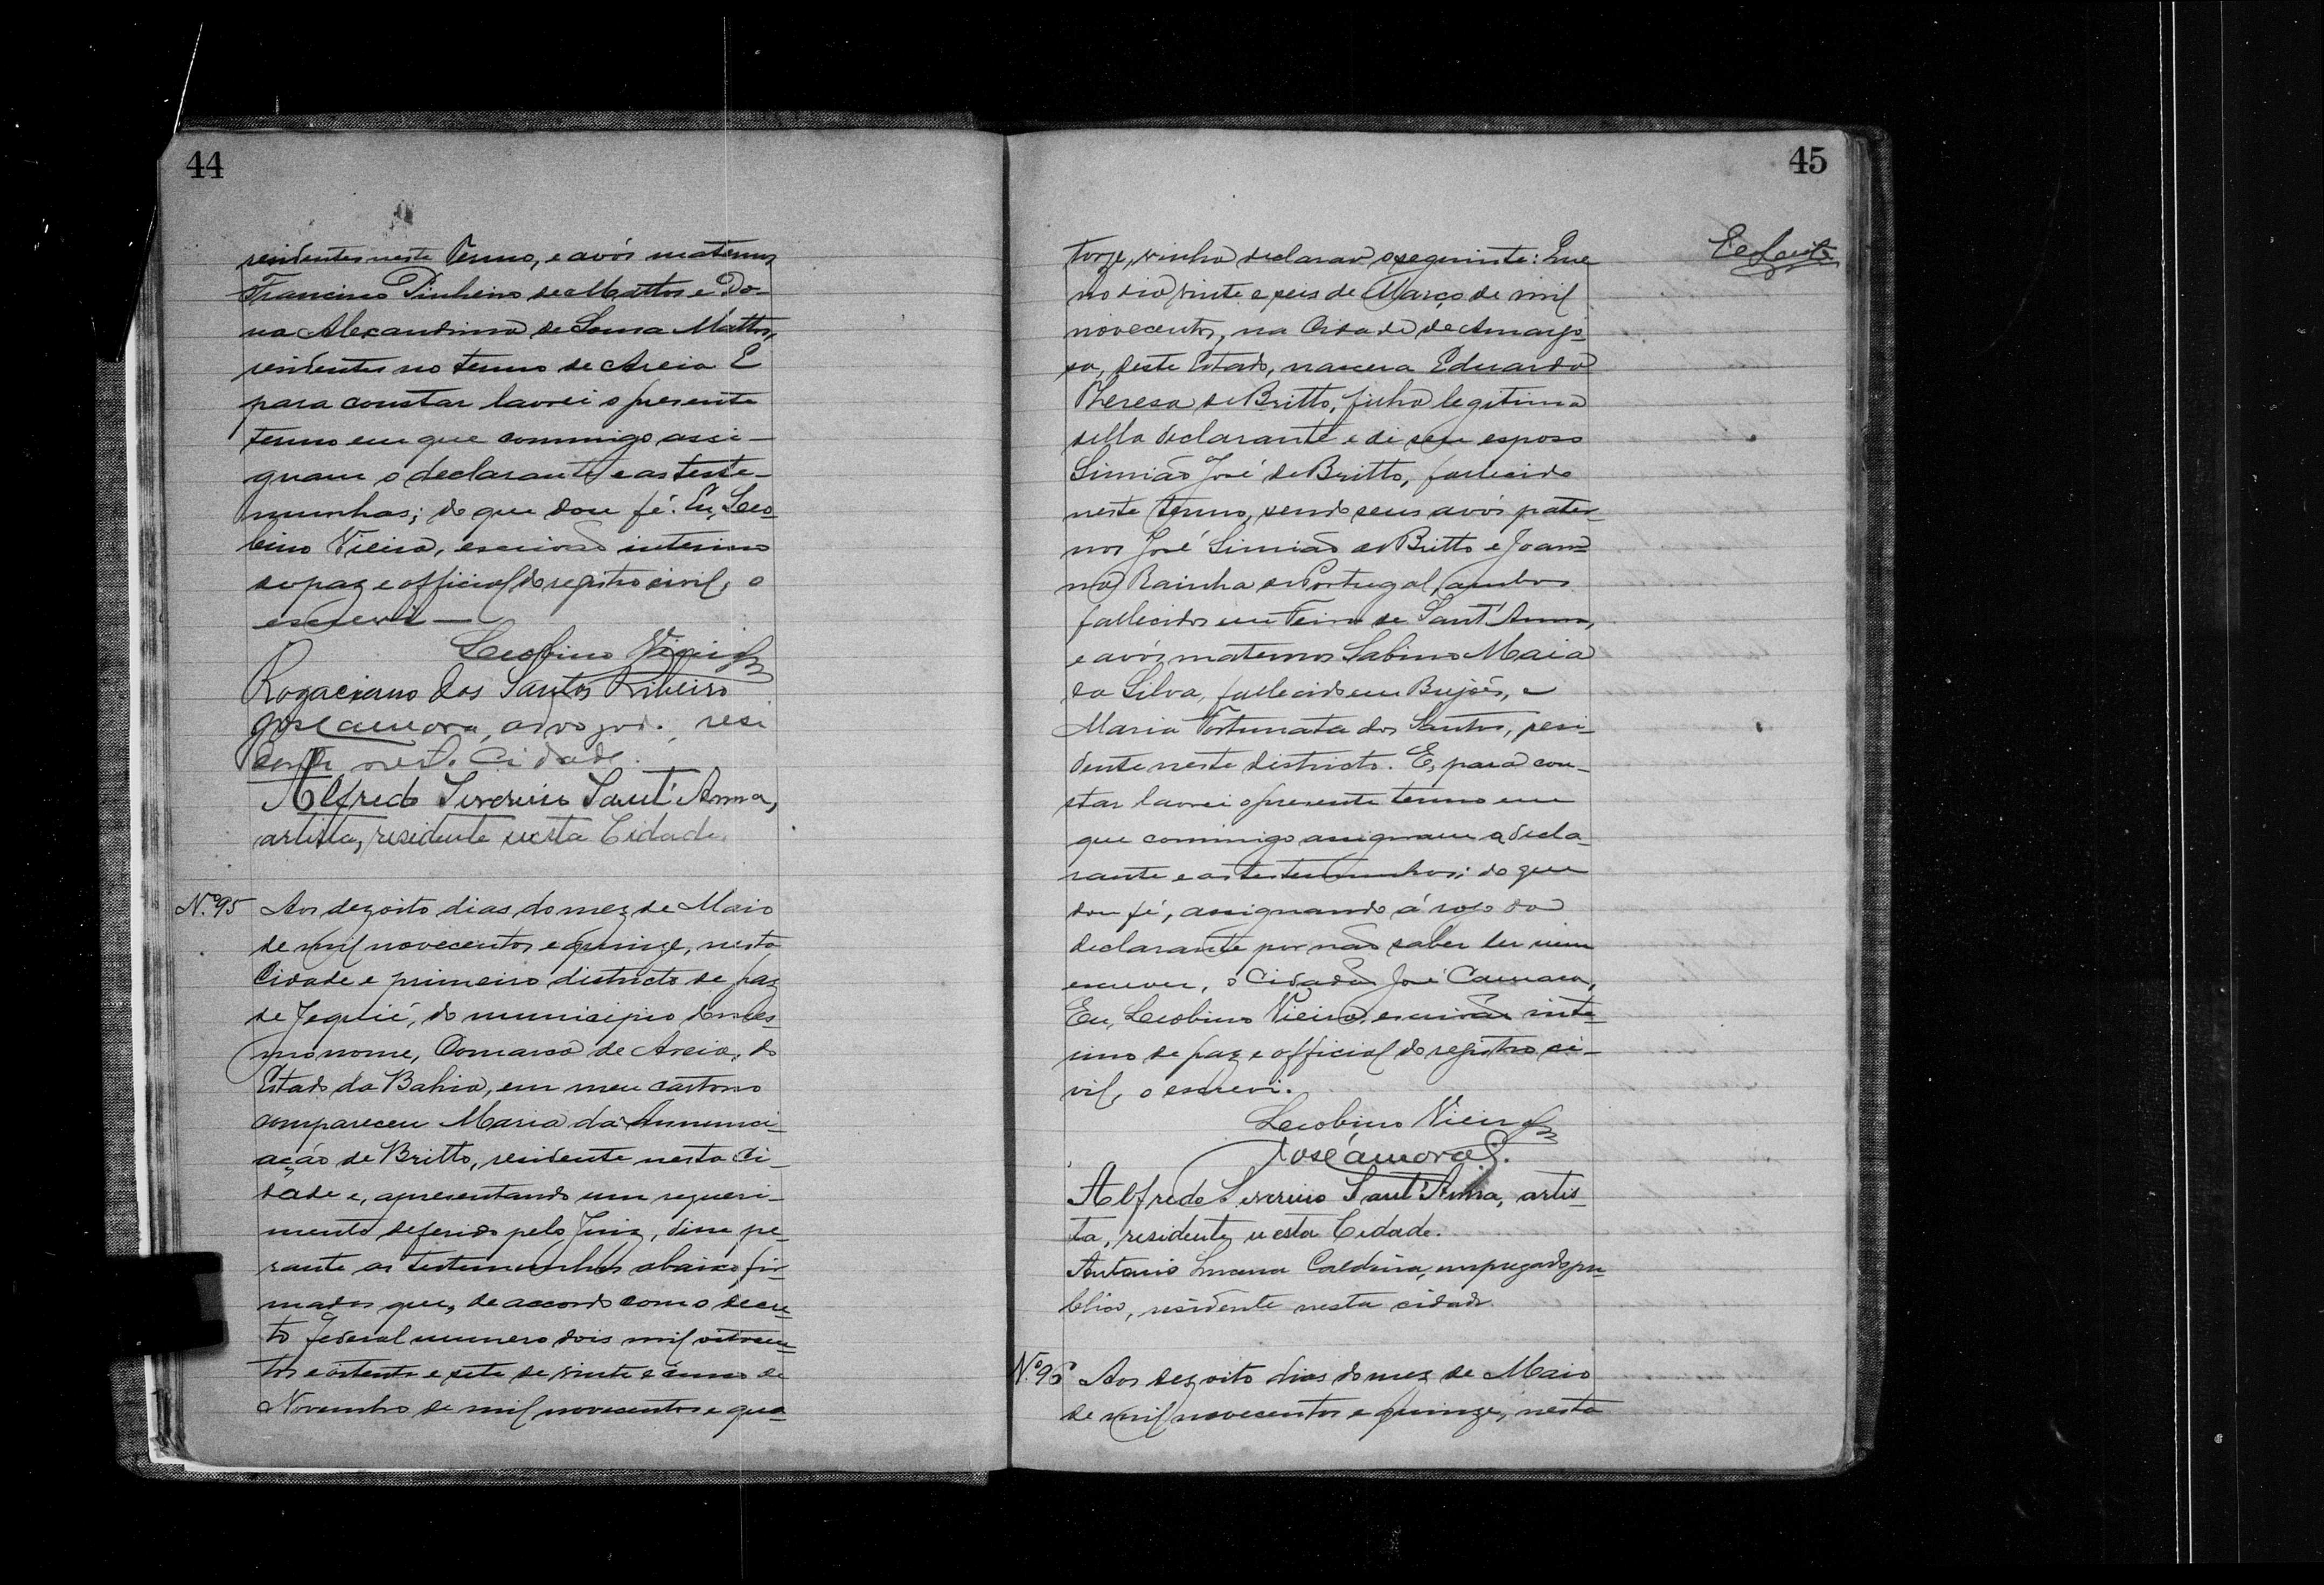 44
residentes neste Termo, e avós maternos
Francisco Pinheiro de Mattos e Do-
na Alexandrina de Sousa Mattos,
residentes no termo de Areia E
para constar lavrei o presente
termo em que commigo assi-
gnam o declarante e as teste-
munhas; do que dou fé. Eu, Leo-
bino Vieira, escrivão interino
de paz e official do registro civil, o
escrevi—
Leobino Vieira
Rogaciano dos Santos Ribeiro
José Camora, advogado, resi
dente nesta Cidade.
Alfredo Severino Sant'Anna,
artista, residente nesta Cidade.
Nº 95 Aos dezoito dias do mez de Maio
de mil novecentos e quinze, nesta
Cidade e primeiro districto de paz
de Jequié, do municipio do mes-
mo nome, Comarca de Areia, do
Estado da Bahia, em meu cartorio
compareceu Maria da Annunci-
ação de Britto, residente nesta Ci-
dade e, apresentando um requeri-
mento deferido pelo Juiz, disse pe-
rante as testemunhas abaixo fir-
madas que, de accordo com o decre-
to federal numero dois mil oitocen-
tos e oitenta e sete de vinte e cinco de
Novembro de mil novecentos e qua-
45
torze, vinha declarar o seguinte: Que
no dia vinte e seis de Março de mil
novecentos, na Cidade de Amargo-
sa, deste Estado, nascera Eduarda
Thereza de Britto, filha legitima
della declarante e de seu esposo
Simião José de Britto, fallecido
neste termo, sendo seus avós pater-
nos José Simião de Britto e Joan-
na Rainha de Portugal, ambos
fallecidos em Feira de Sant'Anna,
e avós maternos Sabino Maia
da Silva, fallecido em Brejões, e
Maria Fortunata dos Santos, resi-
dente neste districto. E, para con-
star lavrei o presente termo em
que commigo assignam a decla-
rante e as testemunhas; do que
dou fé, assignando á rogo da
declarante por não saber ler nem
escrever, o Cidadão José Camara,
Eu, Leobino Vieira, escrivão inte-
rino de paz e official do registro ci-
vil, o escrevi.
Leobino Vieira
José Camora
Alfredo Severino Sant'Anna, artis-
ta, residente nesta Cidade.
Antonio Caldeira, empregado pu-
blico, residente nesta cidade.
Nº 96 Aos dezoito dias do mez de Maio
de mil novecentos e quinze, nesta